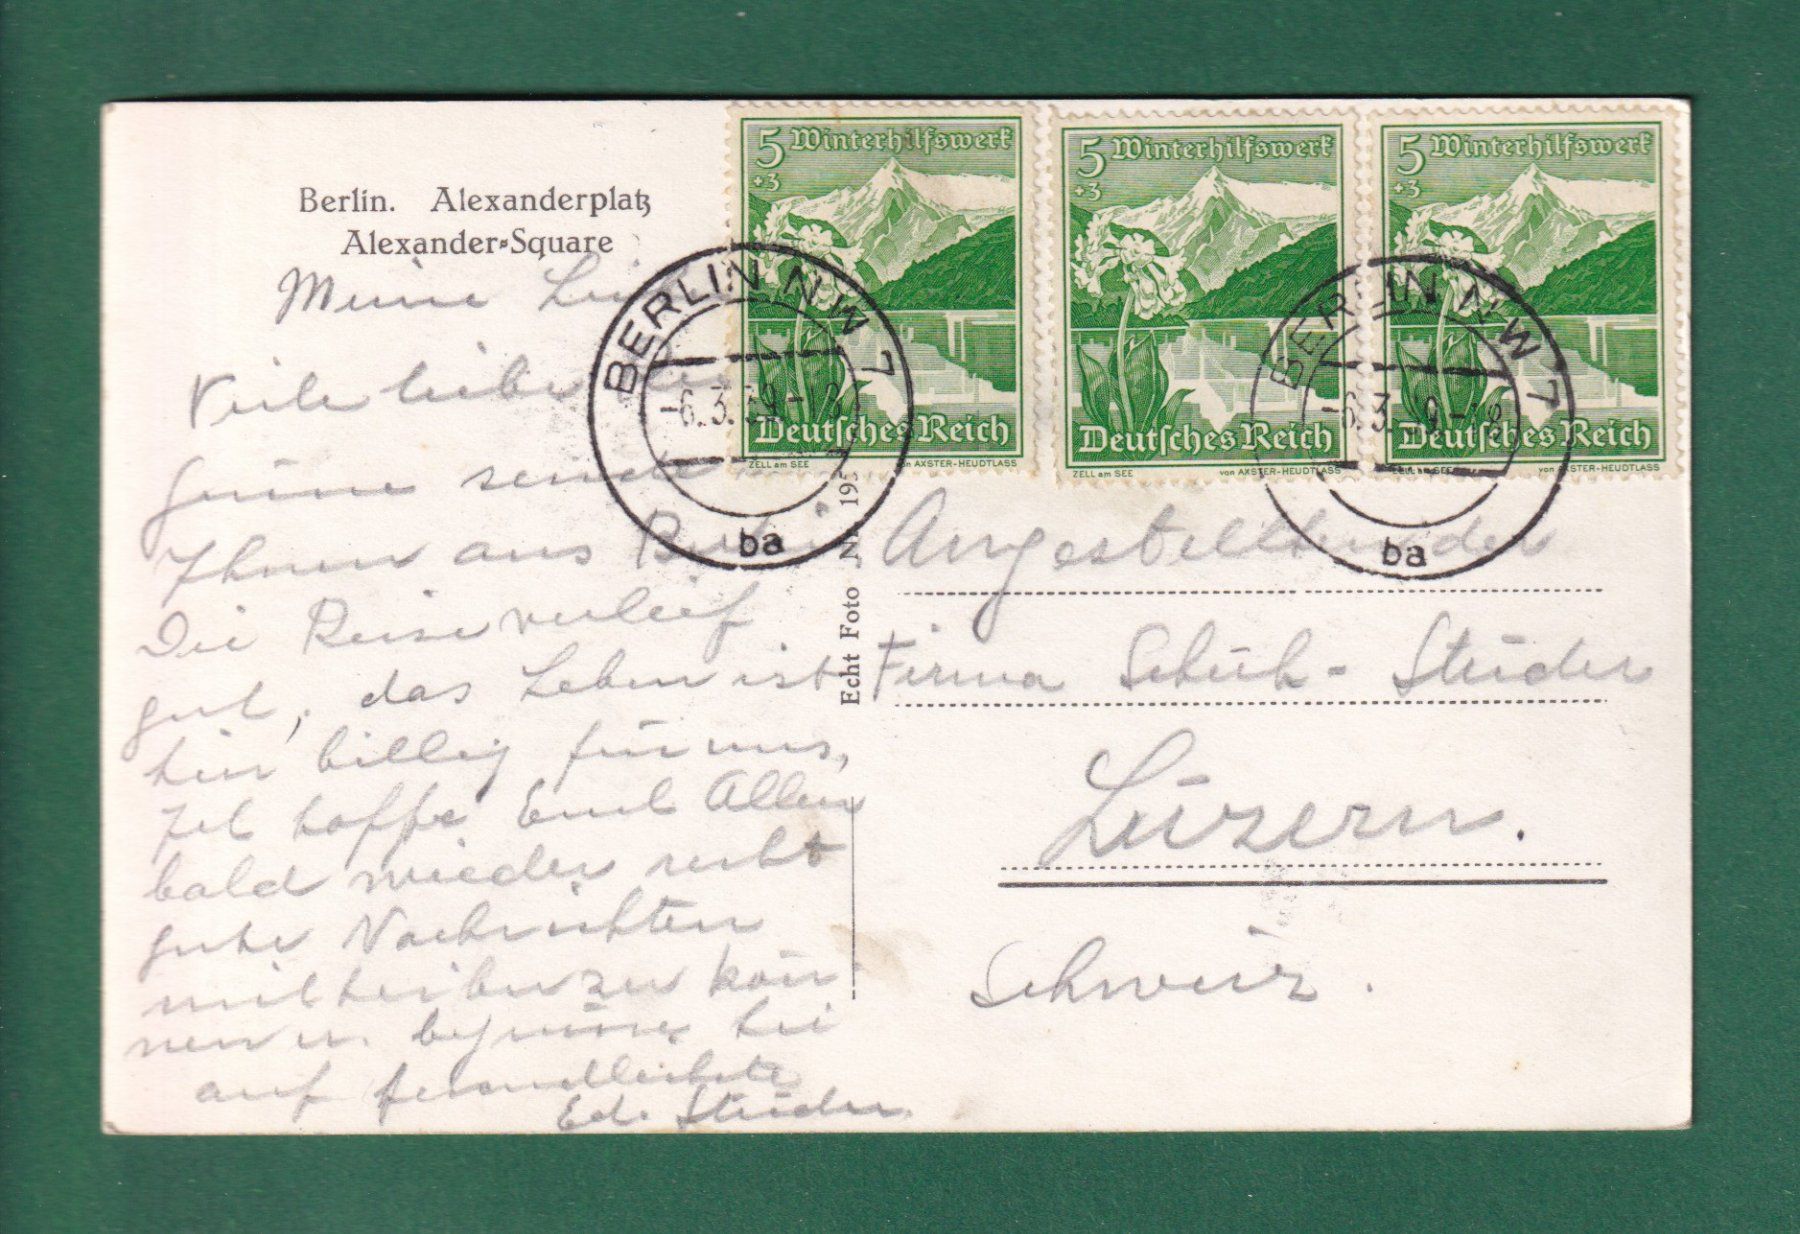 Berlin. Alexanderplatz
Alexander-Square
5 Winterhilfswerk
+3
Deutsches Reich
ZELL am SEE von AXSTER-HEUDTLASS
5 Winterhilfswerk
+3
Deutsches Reich
ZELL am SEE von AXSTER-HEUDTLASS
5 Winterhilfswerk
+3
Deutsches Reich
ZELL am SEE von AXSTER-HEUDTLASS
BERLIN NW 7
-6.3.39
ba
BERLIN NW 7
ba
Meine
Viele liebe
Grüsse sende
Ihnen aus Berlin.
Die Reise verlief
gut, das Leben ist
hier billig für uns,
hoffe Allen
bald wieder recht
gute Nachrichten
mitteilen zu kön
nen u. begrüsse Sie
auf freundlichste
Ed. Studer.
Echt Foto
Angestellten der
Firma Schuh-Studer
Luzern.
Schweiz.